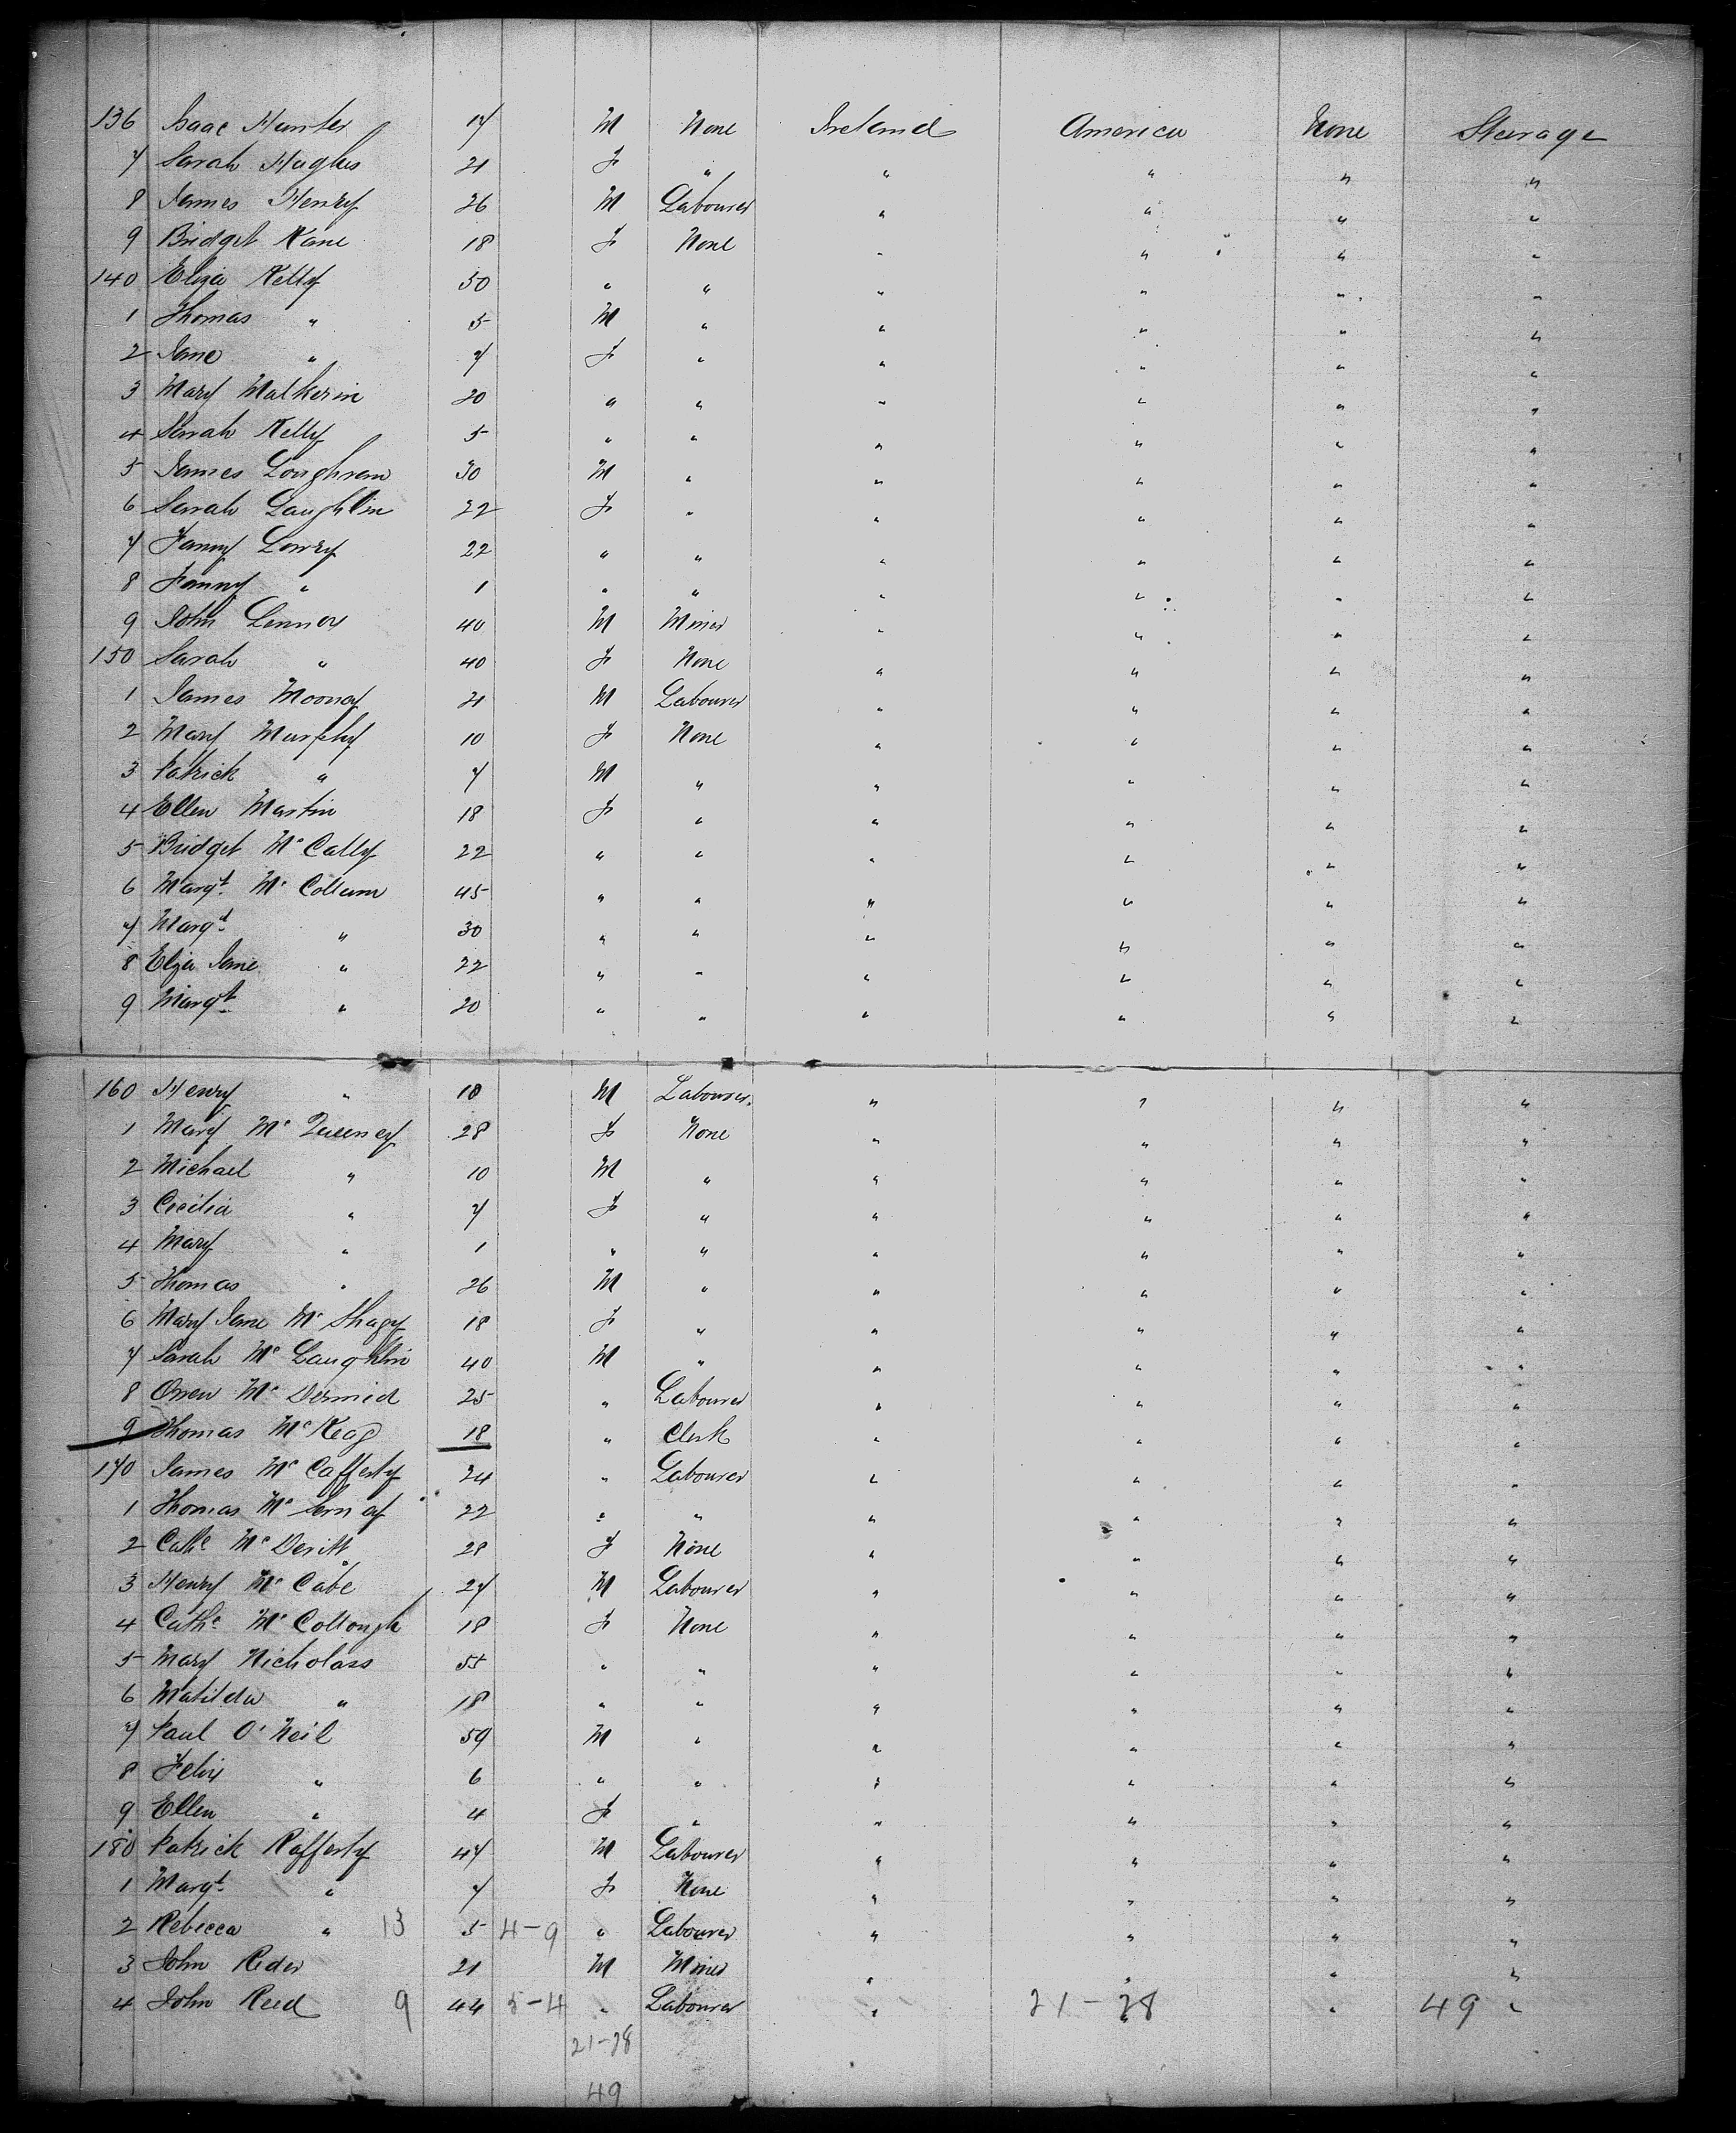 136 Isaac Hunter 17 M None Ireland America None Steerage
7 Sarah Hughes 21 F " " " " "
8 James Henry 26 M Labourer " " " "
9 Bridget Kane 18 F None " " " "
140 Eliza Kelly 50 " " " " " "
1 Thomas " 5 M " " " " "
2 Jane " 7 F " " " " "
3 Mary Mulkerin 20 " " " " " "
4 Sarah Kelly 5 " " " " " "
5 James Loughran 30 M " " " " "
6 Sarah Laughlin 22 F " " " " "
7 Fanny Lowry 22 " " " " " "
8 Fanny " 1 " " " " " "
9 John Lennox 40 M Miner " " " "
150 Sarah " 40 F None " " " "
1 James Mooney 21 M Labourer " " " "
2 Mary Murphy 10 F None " " " "
3 Patrick " 7 M " " " " "
4 Ellen Martin 18 F " " " " "
5 Bridget Mc Cally 22 " " " " " "
6 Margt. Mc Collum 45 " " " " " "
7 Margt. " 30 " " " " " "
8 Eliza Jane " 22 " " " " " "
9 Margt. " 20 " " " " " "
160 Henry " 18 M Labourer " " " "
1 Mary Mc Queeney 28 F None " " " "
2 Michael " 10 M " " " " "
3 Cecilia " 7 F " " " " "
4 Mary " 1 " " " " " "
5 Thomas " 26 M " " " " "
6 Mary Jane Mc Shagy 18 F " " " " "
7 Sarah Mc Laughlin 40 M " " " " "
8 Owen Mc Dermid 25 " Labourer " " " "
9 Thomas Mc Keag 18 " Clerk " " " "
170 James Mc Cafferty 24 " Labourer " " " "
1 Thomas Mc 22 " " " " " "
2 Cathe Mc Devitt 28 F None " " " "
3 Henry Mc Cabe 27 M Labourer " " " "
4 Cathe Mc Collough 18 F None " " " "
5 Mary Nicholass 55 " " " " " "
6 Matilda " 18 " " " " " "
7 Paul O'Neil 59 M " " " " "
8 Felix " 6 " " " " " "
9 Ellen " 4 F " " " " "
180 Patrick Rafferty 47 M Labourer " " " "
1 Margt. " 7 F None " " " "
2 Rebecca " 13 5 4-9 " Labourer " " " "
3 John Reder 21 M Miner " " " "
4 John Reed 9 44 5-4 " Labourer " 21-28 " " 49 "
21-28
49